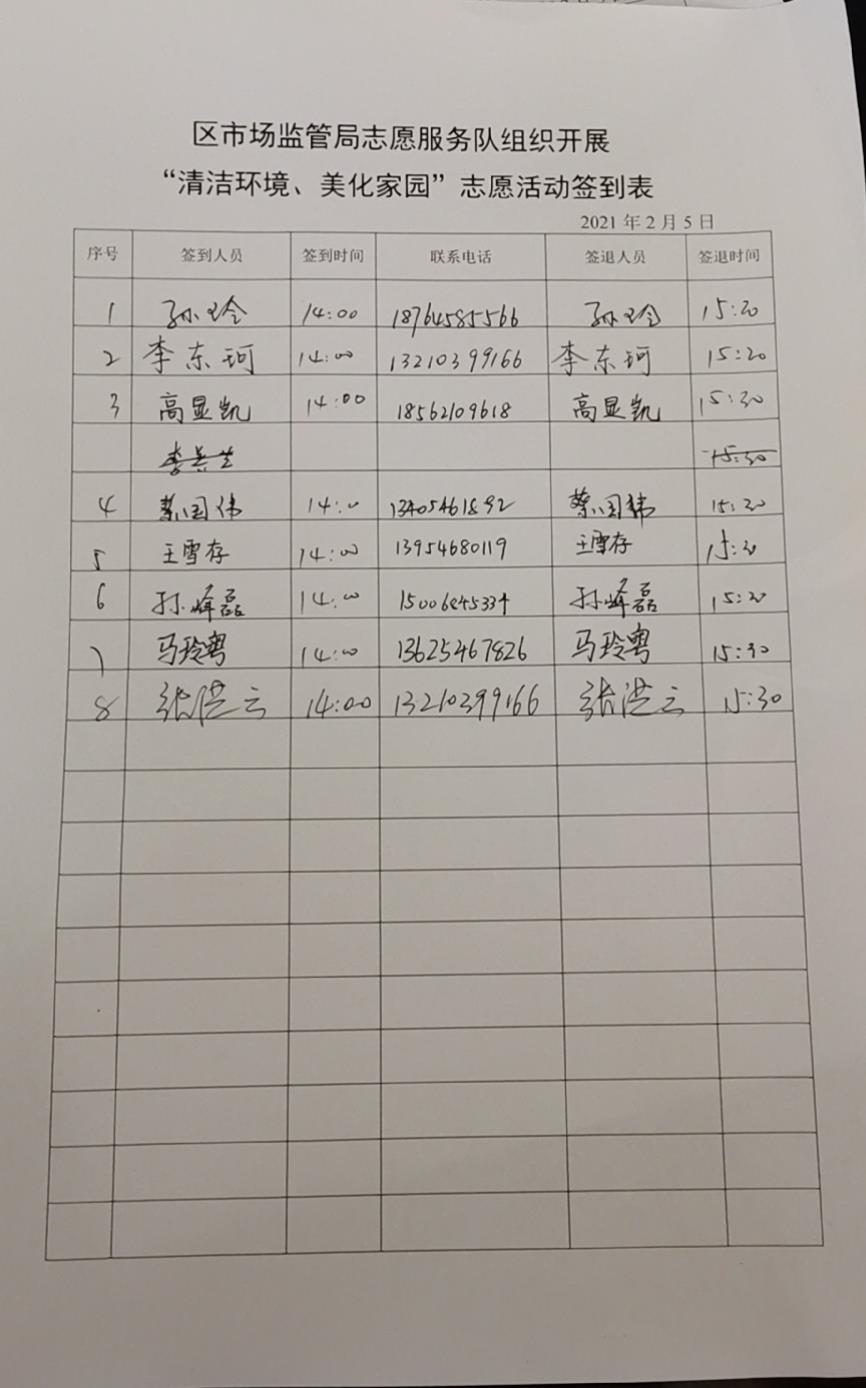 区市场监管局志愿服务队组织开展
“清洁环境、美化家园”志愿活动签到表
2021年2月5日
序号 签到人员 签到时间 联系电话 签退人员 签退时间
1 孙玲 14:00 18764585566 孙玲 15:20
2 李东珂 14:00 13210399166 李东珂 15:20
3 高显凯 14:00 18562109618 高显凯 15:30
15:30
4 蔡国伟 14:00 13405461892 蔡国伟 15:20
5 王雪存 14:00 13954680119 王雪存
6 孙峰磊 14:00 孙峰磊 15:20
7 马玲粤 14:00 13625467826 马玲粤 15:30
8 张洪云 14:00 13210399166 张洪云 15:30